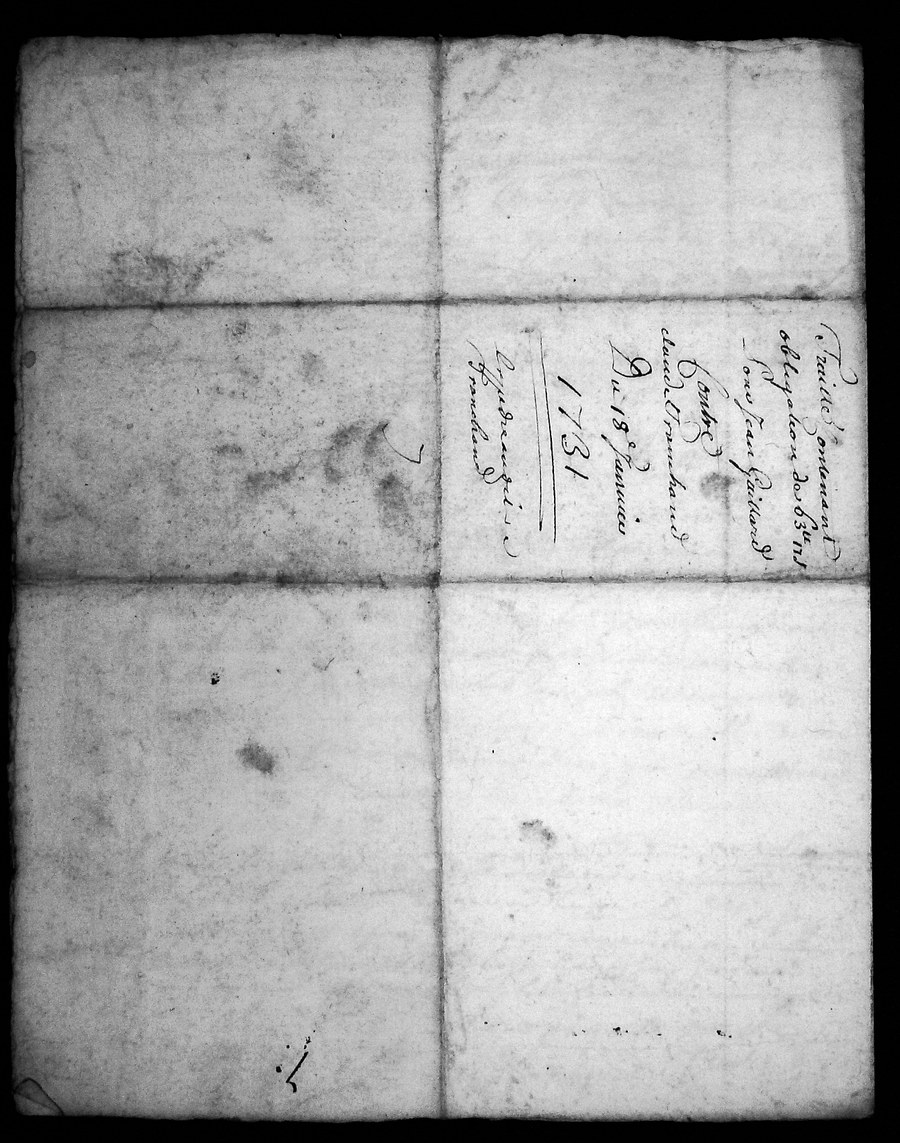 Traitté Contenant
obbligation de 63tt 11s
Pour Jean Gaillard
Contre
claude tranchand
Du 18e Janvier
1731
tranchand